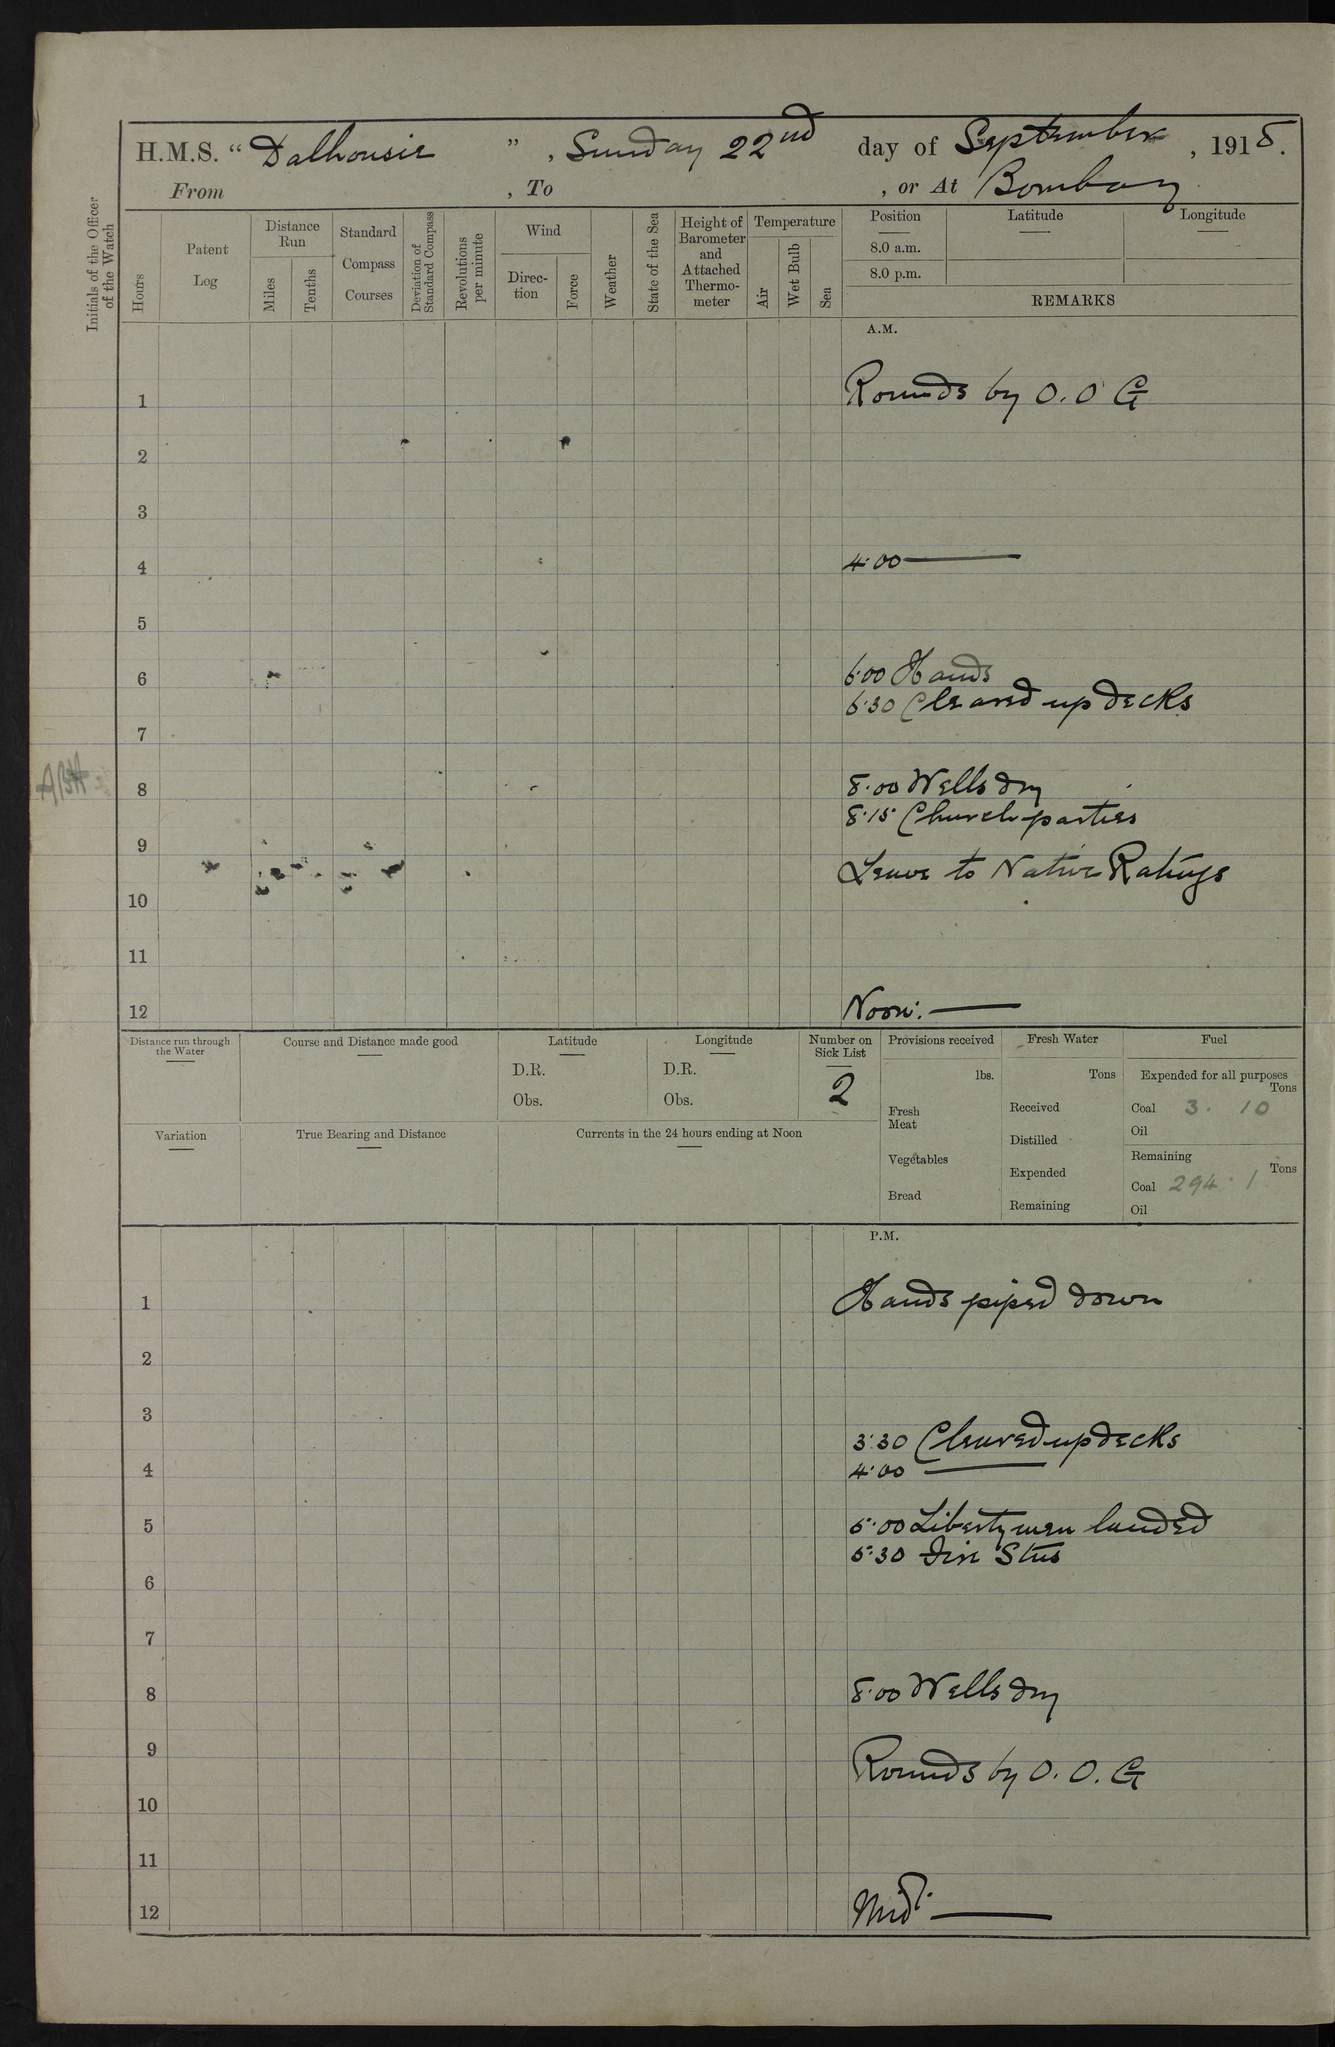 H.M.S. “ Dalhousie ” , Sunday 22nd day of September , 1918.
From , To , or At Bombay
Initials of the Officer of the Watch
Hours
Patent Log
Distance Run
Miles
Tenths
Standard Compass Courses
Deviation of Standard Compass
Revolutions per minute
Wind
Direction
Force
Weather
State of the Sea
Height of Barometer and Attached Thermometer
Temperature
Air
Wet Bulb
Sea
Position
Latitude
Longitude
8.0 a.m.
8.0 p.m.
REMARKS
A.M.
1 Rounds by O.O G
2
3
4 4.00 ———
5
6 6.00 Hands
6.30 Cleared up decks
7
8 8.00 Wells dry
8.15 Church parties
9
Leave to Native Ratings
10
11
12 Noon: ———
Distance run through the Water
Course and Distance made good
Latitude
D.R.
Obs.
Longitude
D.R.
Obs.
Number on Sick List
2
Provisions received
lbs.
Fresh Meat
Vegetables
Bread
Fresh Water
Tons
Received
Distilled
Expended
Remaining
Fuel
Expended for all purposes
Tons
Coal 3. 10
Oil
Remaining
Tons
Coal 294.1
Oil
Variation
True Bearing and Distance
Currents in the 24 hours ending at Noon
P.M.
1 Hands piped down
2
3
3.30 Cleared up decks
4 4.00 ———
5 5.00 Liberty men landed
5.30 Fire Stns
6
7
8 8.00 Wells dry
9
Rounds by O.O.G
10
11
12 Midt. ———